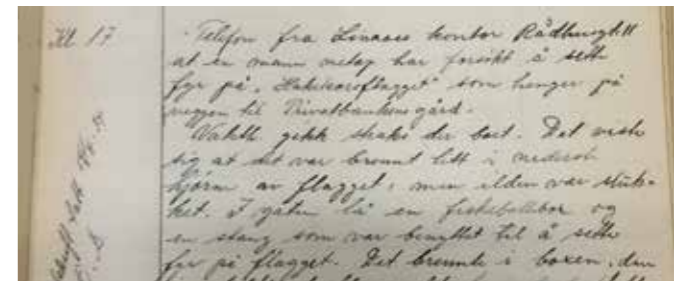 Kl 17
Telefon fra Linaaes kontor Rådhusgt. 11
at en mann netop har forsøkt å sette
fyr på "Hakekorsflagget" som henger på
veggen til Privatbankens gård.
Vakth. gekk straks der bort. Det viste
sig at det var brennt litt i nederste
hjørne av flagget, men ilden var sluk-
ket. I gaten lå en fiskebollebox og
en stang som var benyttet til å sette
fyr på flagget. Det brennte i boxen, den